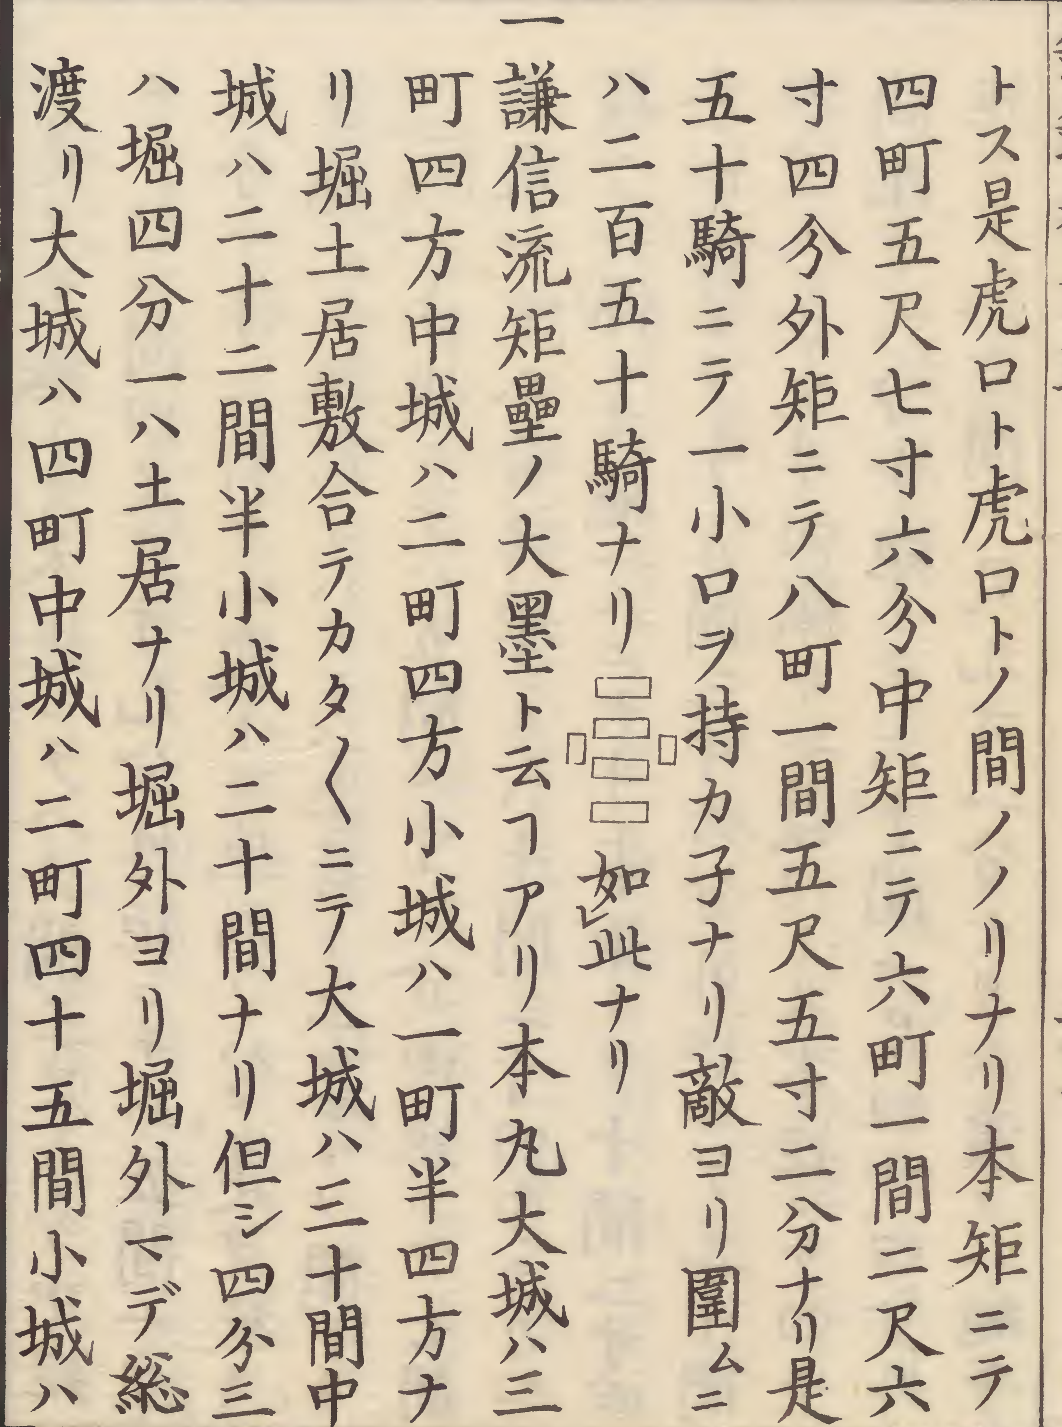 トス是虎口ト虎口トノ間ノノリナリ本矩ニテ
四町五尺七寸六分中矩ニテ六町一間二尺六
寸四分外矩ニテ八町一間五尺五寸二分ナリ是
五十騎ニテ一小口ヲ持カ子ナリ敵ヨリ圍ムニ
ハ二百五十騎ナリ如レ此ナリ
一謙信流矩壘ノ大墨ト云フアリ本丸大城ハ三
町四方中城ハ二町四方小城ハ一町半四方ナ
リ堀土居敷合テカタ〱ニテ大城ハ三十間中
城ハ二十二間半小城ハ二十間ナリ但シ四分三
ハ堀四分一ハ土居ナリ堀外ヨリ堀外マデ総
渡リ大城ハ四町中城ハ二町四十五間小城ハ